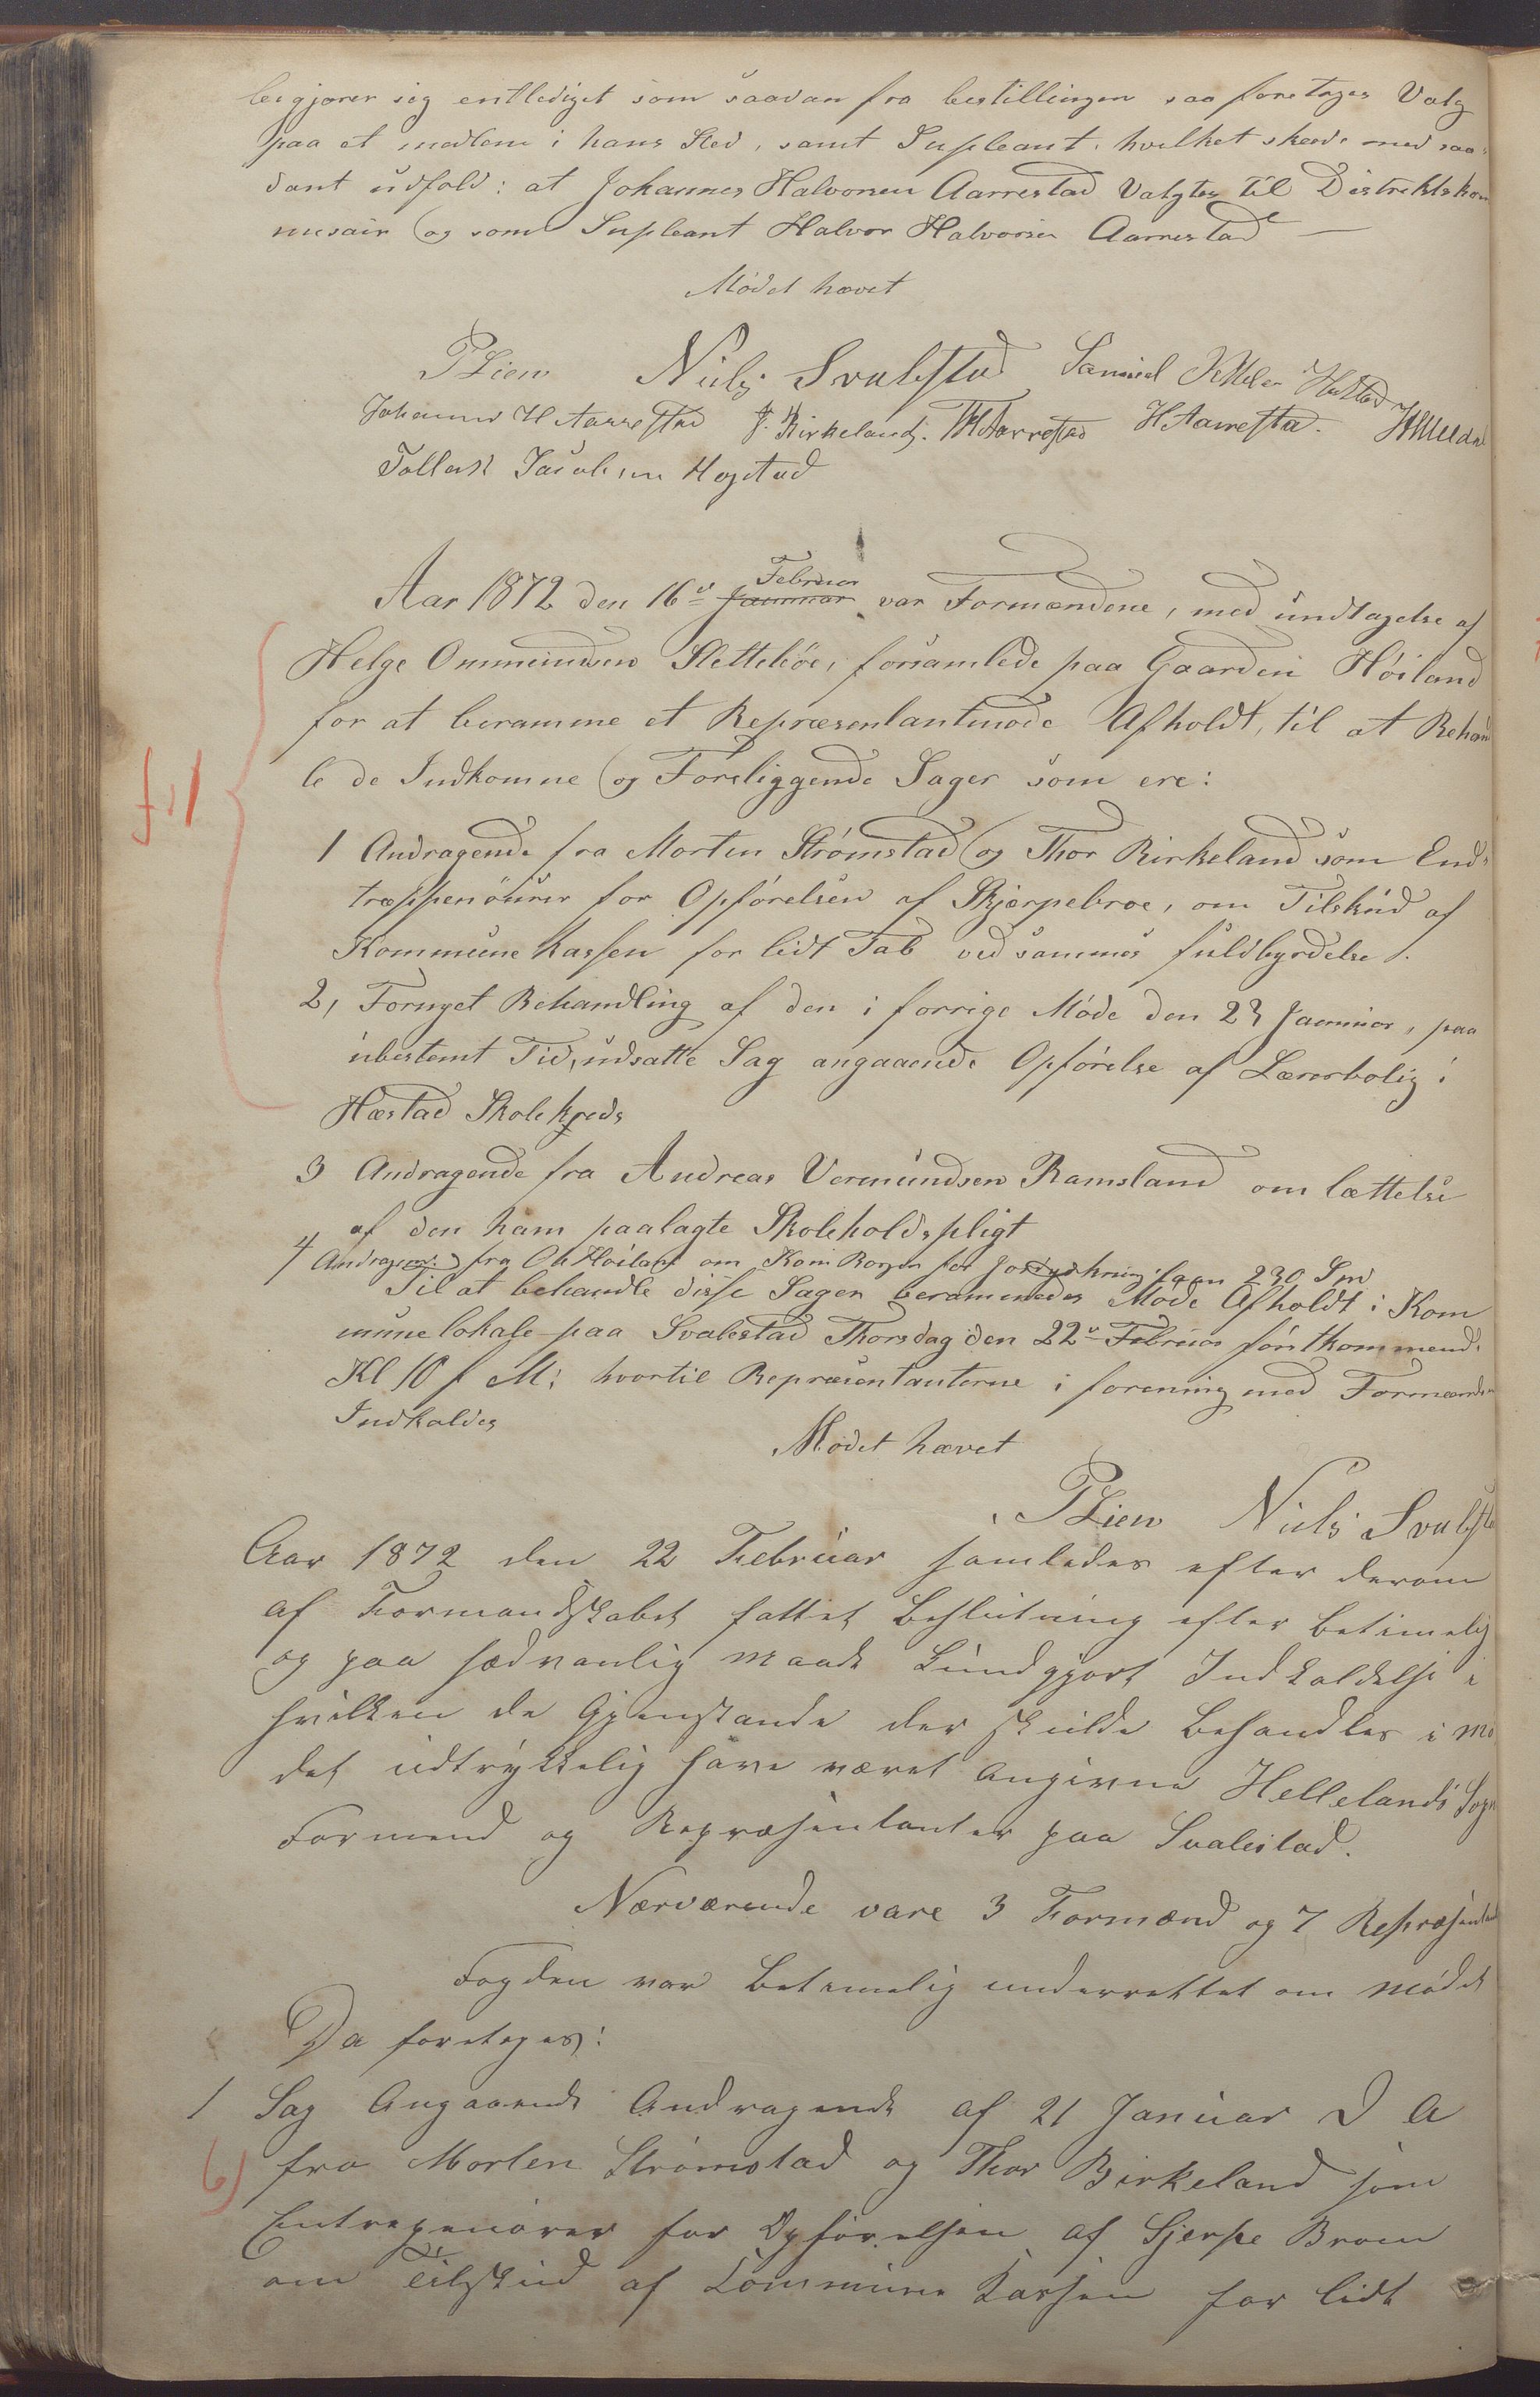 begjører sig entlediget som saadan fra bestillingen saa foretages Valg
paa et medlem i hans Sted, samt Supleant, hvilket skede med saa
dant udfald: at Johannes Halvorsen Aarrestad Valgtes til Distriktskom
misair og som Supleant Halvor Halvorsen Aarrestad
Mødet hævet
PLien Niels Svalestad Samuel Hæstad
Johannes H Aarrestad J. Birkeland. TH Aarrestad H Aarrestad.
Tollak Jacobsen Hogstad
Aar 1872 den 16de Januar Februar var Formændene, med undtagelse af
Helge Ommundsen Slettebøe, forsamlede paa Gaarden Høiland
for at beramme et Repræsentantmøde Afholdt, til at Behand
le de Indkomne og Foreliggende Sager som ere:
fil
1 Andragende fra Morten Strømstad og Thor Birkeland som End-
træppenøurer for Opførelsen af Skjærpebroe, om Tilskud af
Kommune Kassen for lidt Tab ved sammes fuldbyrdelse.
2, Fornyet Behandling af den i forrige Møde den 23 Januar, paa
ubestemt Tid, udsatte Sag angaaende Opførelse af Lærerbolig i
Hæstad Skolekreds
3 Andragende fra Andreas Vermundsen Ramsland om lættelse
af den ham paalagte Skoleholdspligt
4 Andragende fra Ole Høiland om Kom Borgen for Jorddyrkningslaan 230 Spd
Til at behandle disse Sager berammedes Møde Afholdt i Kom
munelokale paa Svalestad Thorsdag den 22de Februar førstkommende
Kl 10 f M; hvortil Repræsentanterne i forening med Formænden
Indkaldes
Mødet hævet
PLien Niels Svalesta
Aar 1872 den 22 Februar samledes efter derom
af Formandskabet fattet Beslutning efter betimelig
og paa sædvanlig Maade kundgjort Indkaldelse i
hvilken de Gjenstande der skulde Behandles i Mø
det udtrykkelig have været angivne Hellelands Sogns
Formend og Repræsentanter paa Svalestad.
Nærværende vare 3 Formænd og 7 Repræsentant
Fogden var Betimelig underrettet om Mødet
Da foretoges:
1 Sag Angaaende Andragende af 21 Januar D A
6) fra Morten Strømstad og Thor Birkeland som
Entrepenører for Opførelsen af Sjerpe Broen
om Tilskud af Kommune Kassen for lidt